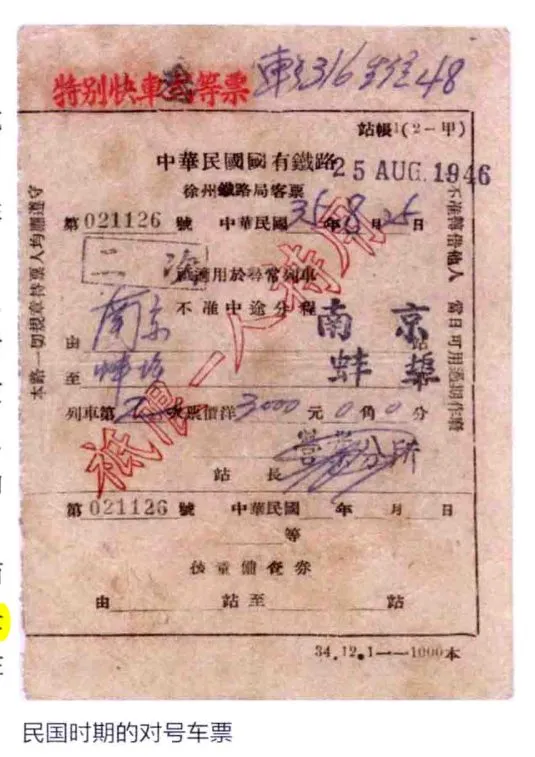 特別快車
等票
316
48
站帳1(2-甲)
中華民國國有鐵路
25 AUG. 1946
徐州鐵路局客票
第021126號 中華民國35年8月25日
適用於尋常列車
不准中途分程
由 南京 南京
至 蚌埠 蚌埠
列車第2次票價洋3000元0角0分
站長
第021126號 中華民國 年 月 日
等
由 站至 站
34.12.1——1000本
本路一切規章持票人均應遵守
不准轉借他人 當日可用過期作廢
祇限一人持用
民国时期的对号车票